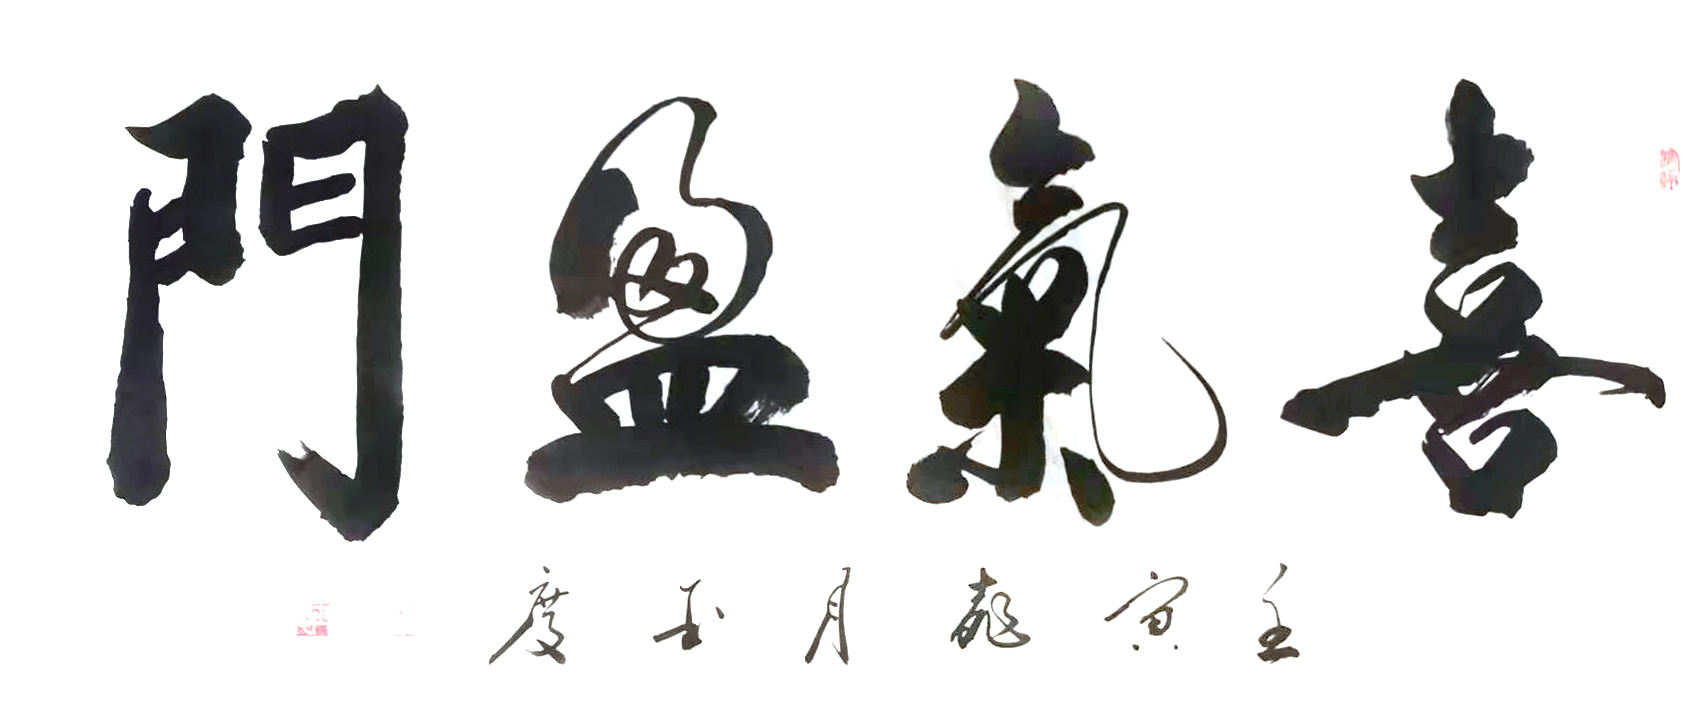 喜氣盈門
壬寅 月 度